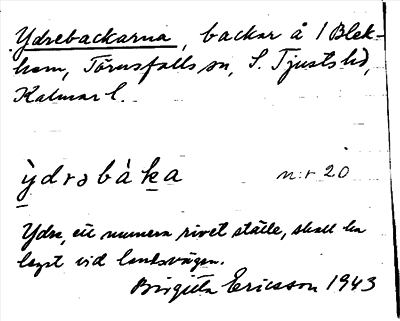 Ydrebackarna, backar å 1 Blek-
hem, Törnsfalls sn, S. Tjusts hd,
Kalmar l.
ỳdrəbàka n:r 20
Ydre, ett numera rivet ställe, skall ha
legat vid landsvägen.
Birgitta Ericsson 1943